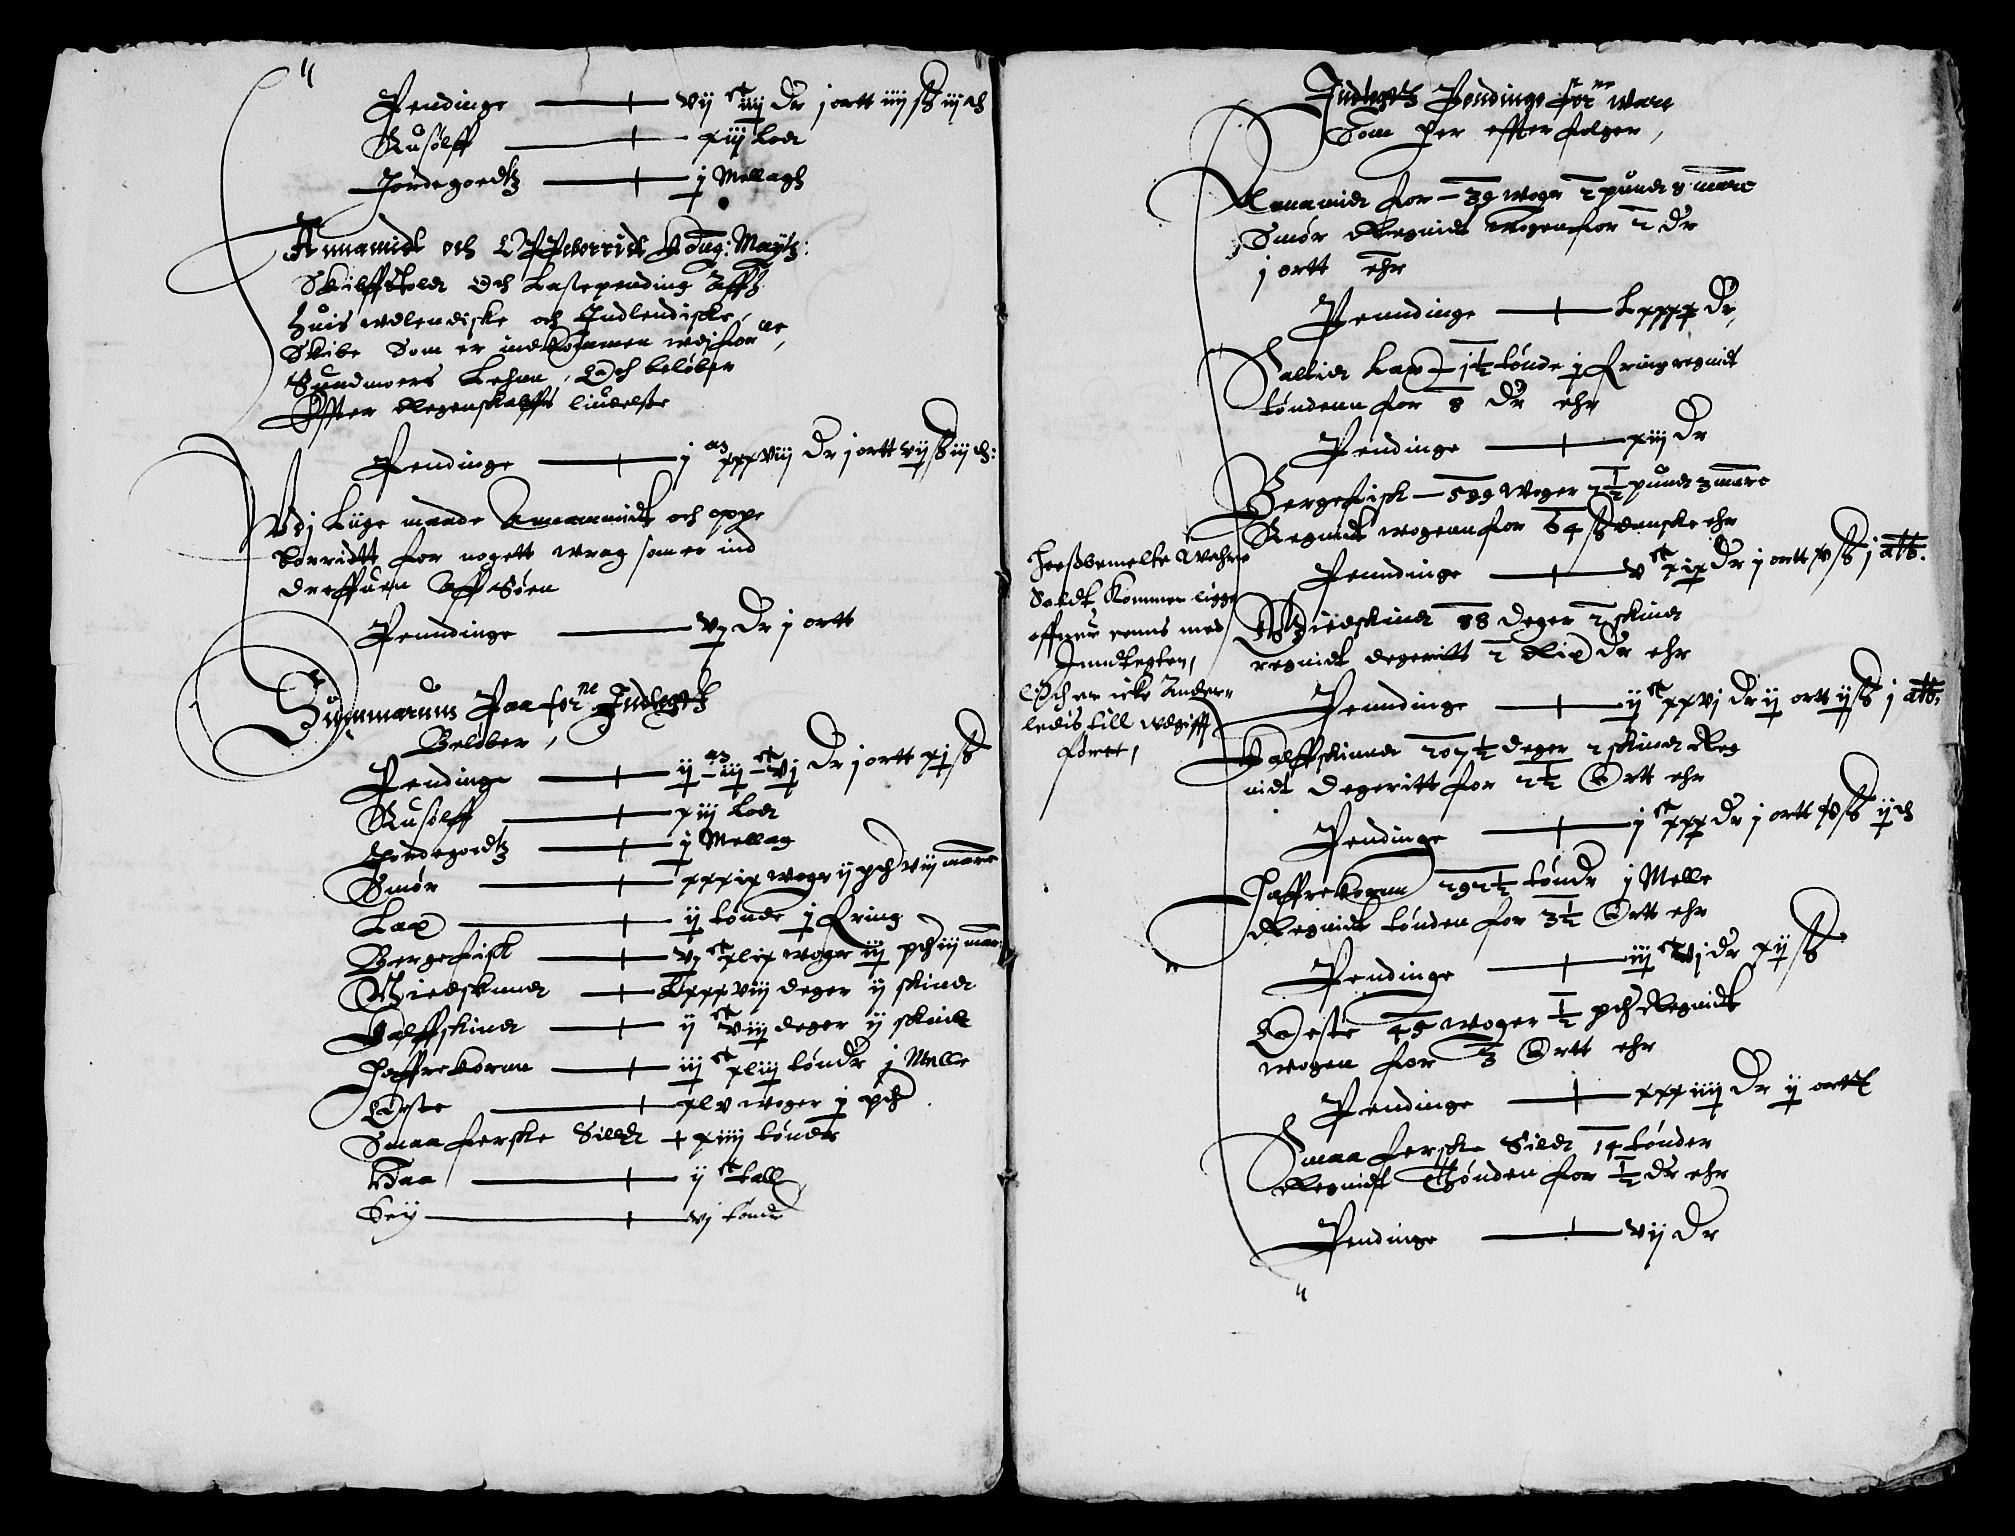 Pendinge — vij ct iiij dr j ortt iiij ß iij ₰
Rusølff — xiij Lod
Jordegoedtz — j Mellagh
Annamidt och Oppeborridt Kong: Maytz:
Skibsstold och Lastepending Aff
huis wdlendiske och Indlendiske
Skibe Som er indkommen wdj forne
Sundmoers Lehnn, Och beløber
Effter Regenskabsens liudelse
Pendinge — j m xxxviij dr j ortt vij ß iij ₰:
Wdj Liige maade Annammidt och oppe
borridtt for nogett wrag som er ind
dreffuen Aff Søen
Penndinge — vj dr j ortt
Summarum Paa forne Indtegt
Beløber,
Pendinge — ij m iij ct vj dr j ortt xj ß
Rusølff — xiij Lod
Jordegoedtz — j Mellag
Smør — xxxix woger ij pd vij marc
Lax — ij tønde j fring
Bergefisk — vj ct xlix woger iij pd iij marc
Giedskindt — Lxxxviij deger ij skind
Kalffskindt — ij ct viij deger ij skindt
Haffrekornn — iij ct xliij tønder j Melle
Oste — xlv woger j pd
Smaa ferske Silldt — xiiij tønder
Haa — ij ct tall
Seÿ — vj tønder
Indtegt Pendinge for ne ware
Som her effter følger,
Annamidt for — 39 woger 2 pundt 8 marc
Smør Regnidt wogen for 2 dr
j ortt ehr
Penndinge — Lxxxx dr,
Saltidt Lax — 1½ tønde j fring regnidt
tøndenn for 8 dr ehr
Pendinge — xiij dr
Bergefisk — 599 woger 2½ pundt 3 marc
Regnidt wogenn for 64 ß danske ehr
Penndinge — v ct xix dr j ortt xv ß j alb.
Giedskindt 88 deger 2 skindt
regnidt degeritt 2 Rix dr ehr
Penndinge — ij ct xxvj dr ij ortt ij ß j alb.
Kalffskinndt 207½ deger 2 skindt Reg
nidt degeritt for 2½ Ortt ehr
Pendinge — j ct xxx dr j ortt xv ß ij ₰
Haffrekornn 292½ tønde j Melle
Regnidt tønden for 3½ Ortt ehr
Pendinge — iij ct vj dr xij ß
Oeste 45 woger ½ pd Regnidt
wogen for 3 Ortt ehr
Pendinge — xxxiiij dr ij ortt
Smaa ferske Sildt 14 tønder
Regnidt Thønden for ½ dr ehr
Pendinge — vij dr
Forßbemelte Wahre
Soldt, Kommer ligge
offuer eens med
Inndtegten,
Och er icke Ander-
ledis till wdgifft
føret,